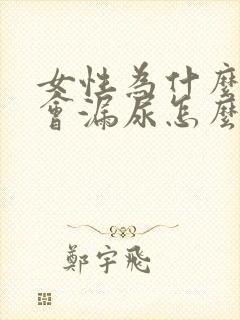 女性為什麼
會漏尿怎麼
鄭宇飛